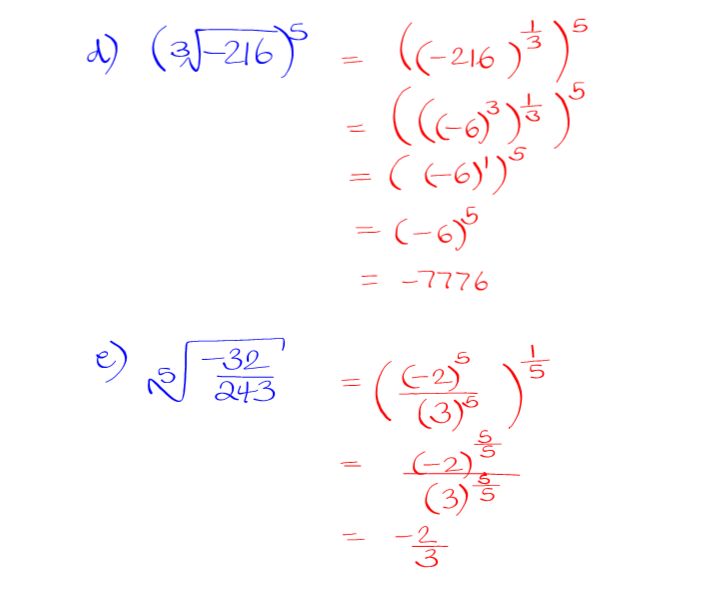 d) (∛-216)⁵ = ((-216)^(1/3))⁵
= (((-6)³)^(1/3))⁵
= ((-6)¹)⁵
= (-6)⁵
= -7776
e) ⁵√(-32/243) = ((-2)⁵/(3)⁵)^(1/5)
= (-2)^(5/5)/(3)^(5/5)
= -2/3